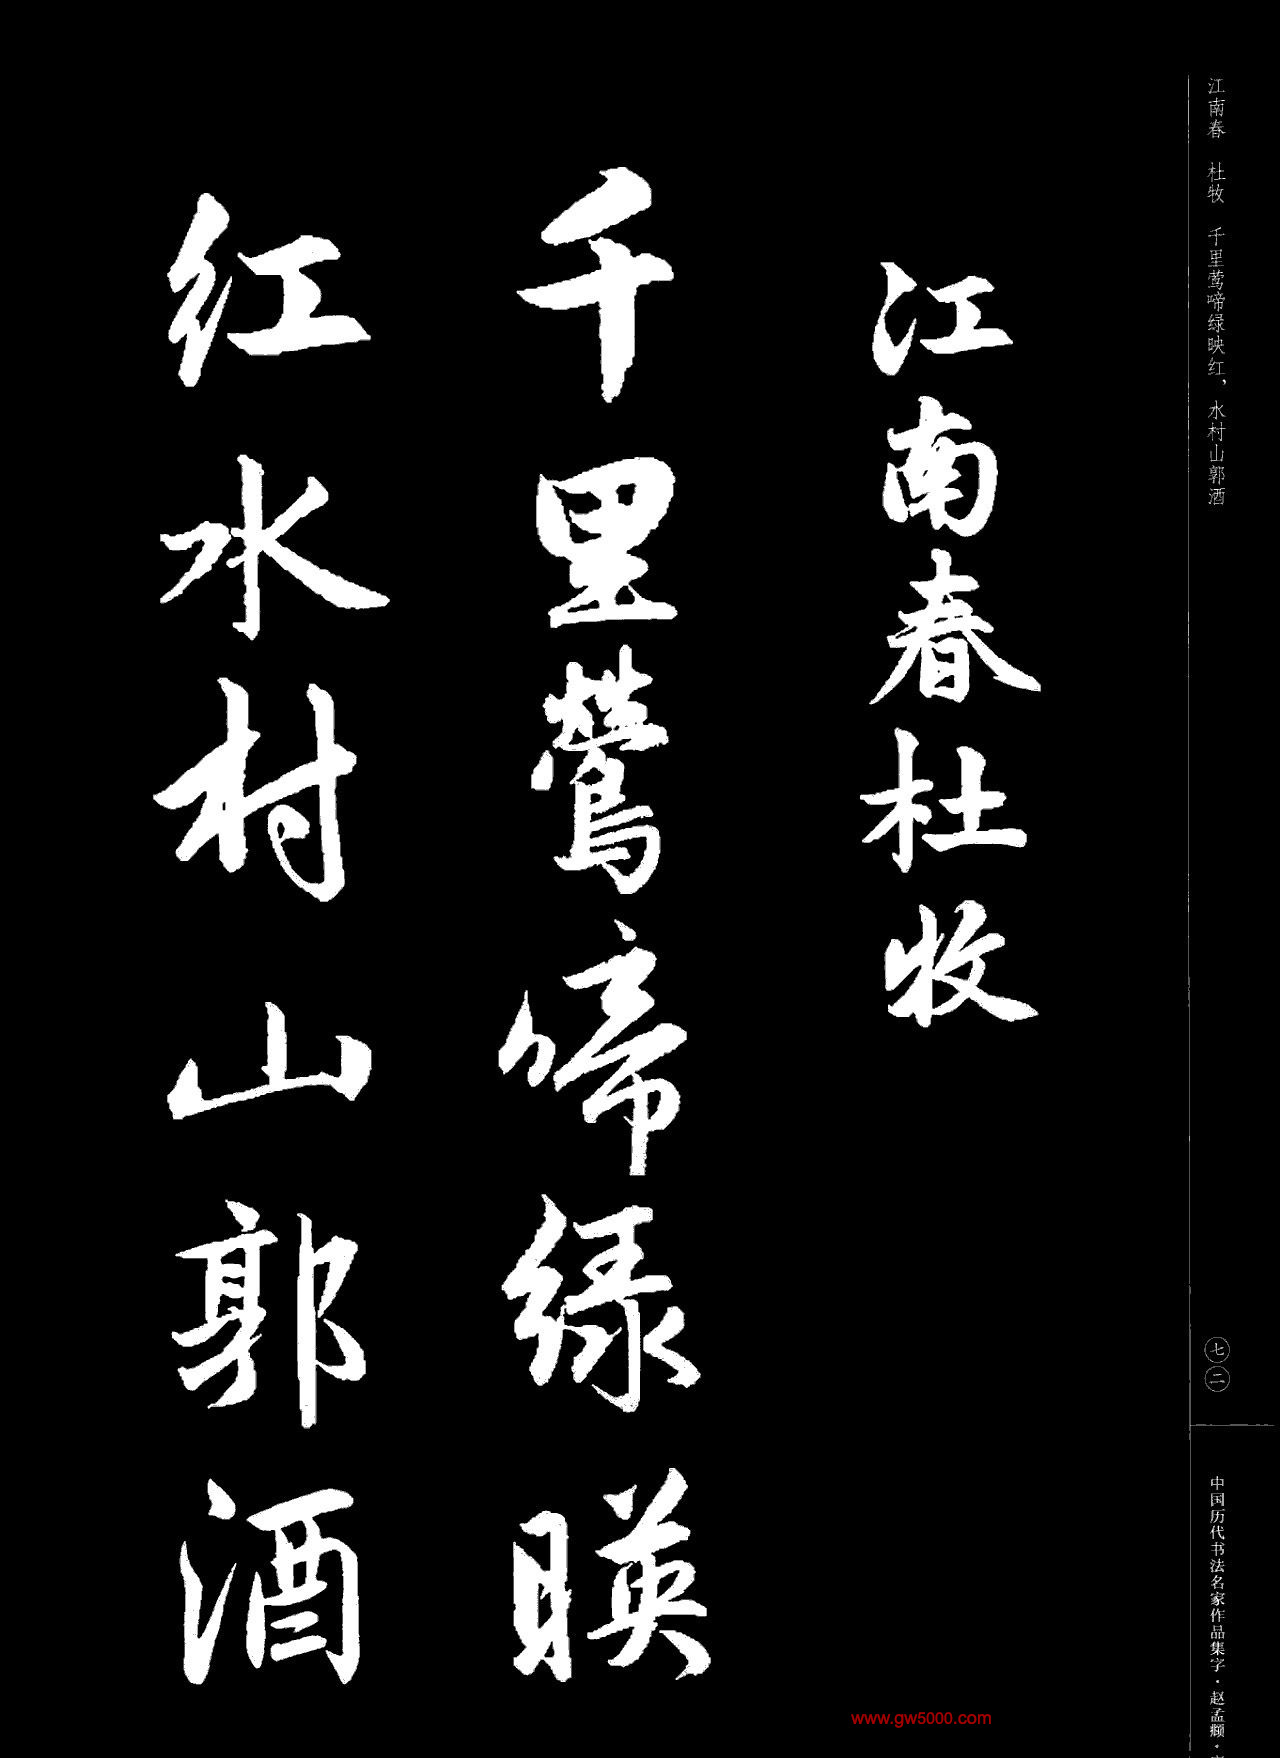 江南春　杜牧　千里莺啼绿映红，水村山郭酒
江南春杜牧
千里鶯啼緑暎
红水村山郭酒
七二
中国历代书法名家作品集字·赵孟頫·
www.gw5000.com